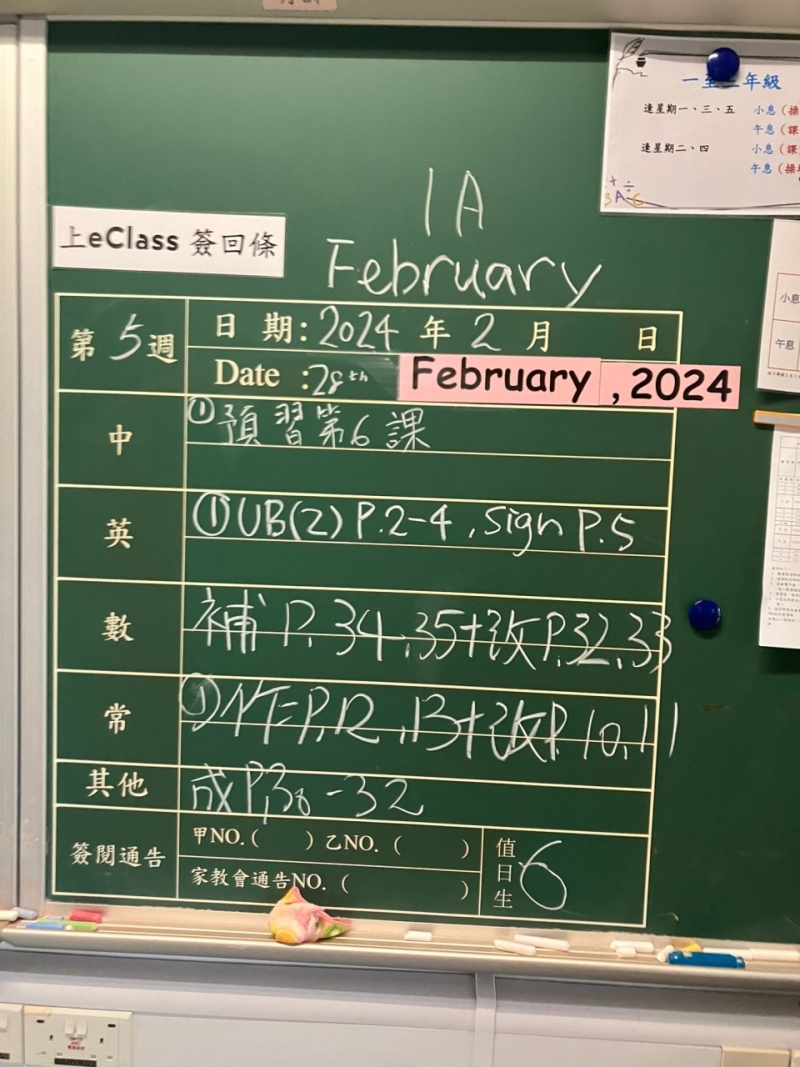 一至三年級
逢星期一、三、五 小息(操
午息(課
逢星期二、四 小息(課
午息(操
1A
上eClass 簽回條
February
第5週
日 期:2024 年 2 月 日
Date :28th February , 2024
小息
午息
中
①預習第6課
英
①UB(2) P.2-4 , Sign P.5
數
補 P.34,35+改P.32,33
常
P.12,13+改P.10,11
其他
成P.30-32
簽閱通告
甲NO.( ) 乙NO. ( )
家教會通告NO. ( )
值日生 6